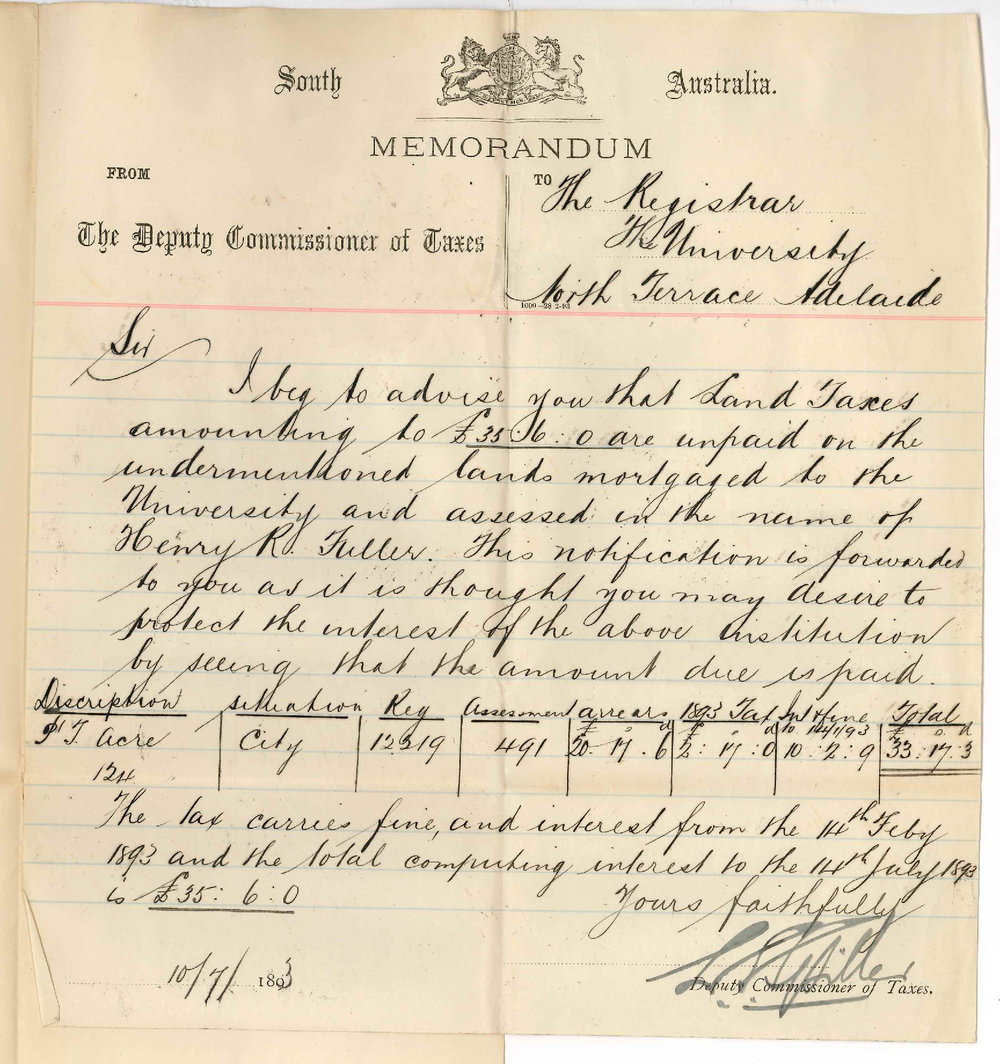 South Australia.
MEMORANDUM
FROM
The Deputy Commissioner of Taxes
TO The Registrar
The University
North Terrace Adelaide
1000—28 2-93
Sir
I beg to advise you that Land Taxes
amounting to £35:6:0 are unpaid on the
undermentioned lands mortgaged to the
University and assessed in the name of
Henry R. Fuller. This notification is forwarded
to you as it is thought you may desire to
protect the interest of the above institution
by seeing that the amount due is paid.
Discription situation Reg Assessment arrears 1893 Tax Int & fine Total
to 14/1/93
Pt T. Acre City 12319 491 20:17.6 2:17:0 10:2:9 33:17.3
124
The tax carries fine, and interest from the 14th Feby
1893 and the total computing interest to the 14th July 1893
is £35:6:0
Yours faithfully
10/7/1893
Deputy Commissioner of Taxes.